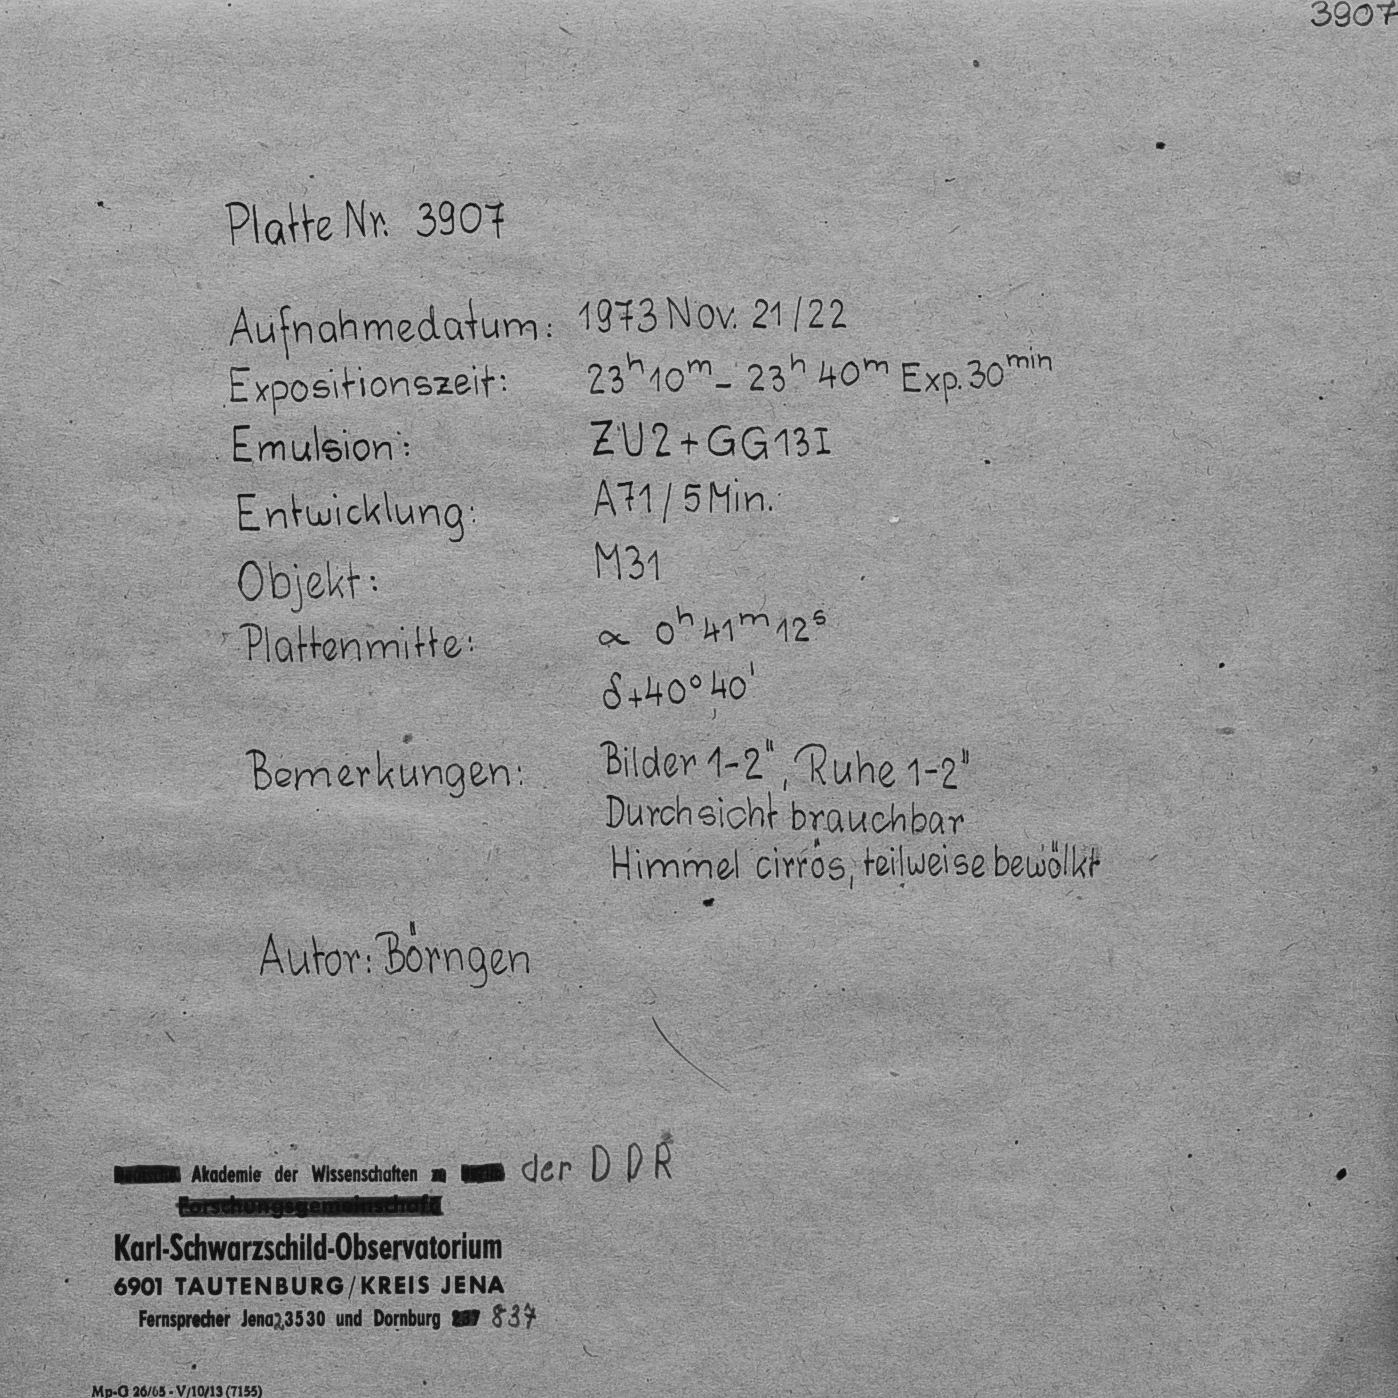 3907
Platte Nr. 3907
Aufnahmedatum: 1973 Nov. 21/22
Expositionszeit: 23h10m - 23h40m Exp. 30min
Emulsion: ZU2+GG13I
Entwicklung: A71/5Min.
Objekt: M31
Plattenmitte: α 0h41m12s
δ+40°40'
Bemerkungen: Bilder 1-2", Ruhe 1-2"
Durchsicht brauchbar
Himmel cirrös, teilweise bewölkt
Autor: Börngen
Akademie der Wissenschaften der DDR
Forschungsgemeinschaft
Karl-Schwarzschild-Observatorium
6901 TAUTENBURG/KREIS JENA
Fernsprecher Jena 23530 und Dornburg 837
Mp-G 26/65 - V/10/13 (7155)